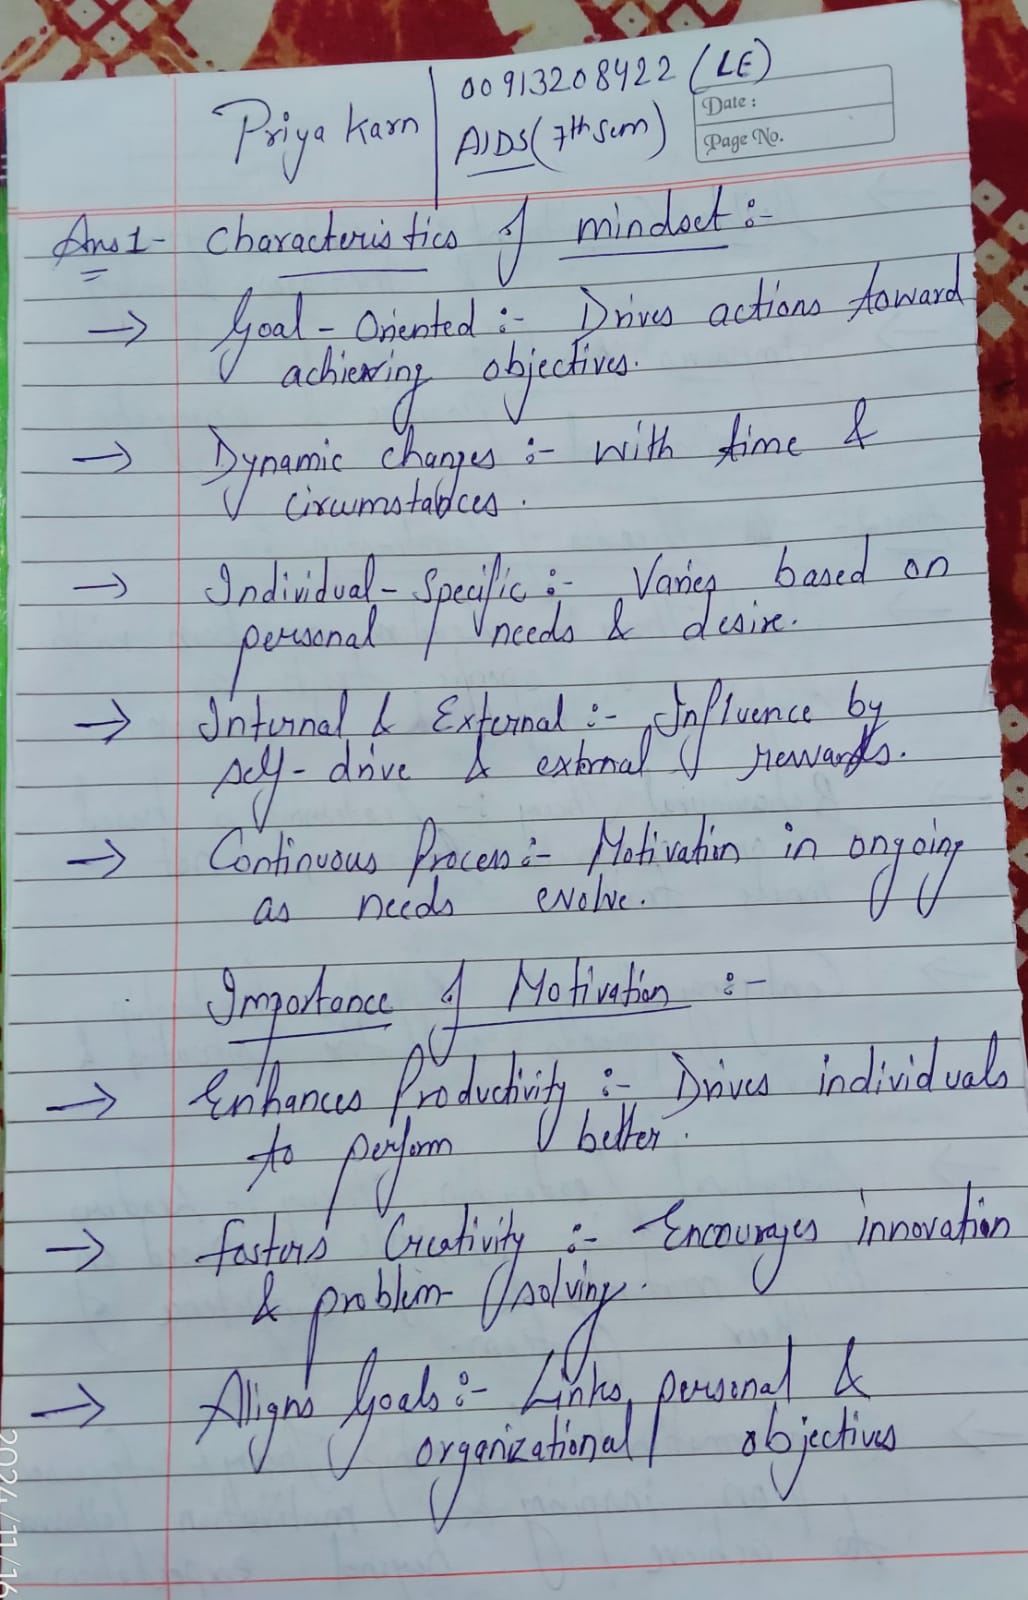 Priya Karn
00913208422 (LE)
AIDS (7th Sem)
Date :
Page No.
Ans 1- Characteristics of mindset :-
→ Goal - Oriented :- Drives actions toward
achieving objectives.
→ Dynamic changes :- with time &
circumstances.
→ Individual - Specific :- Varies based on
personal needs & desire.
→ Internal & External :- Influence by
self - drive & external rewards.
→ Continuous Process :- Motivation in ongoing
as needs evolve.
Importance of Motivation :-
→ Enhances Productivity :- Drives individuals
to perform better.
→ fosters Creativity :- Encourages innovation
& problem - solving.
→ Aligns Goals :- Links personal &
organizational objectives
2024/11/16